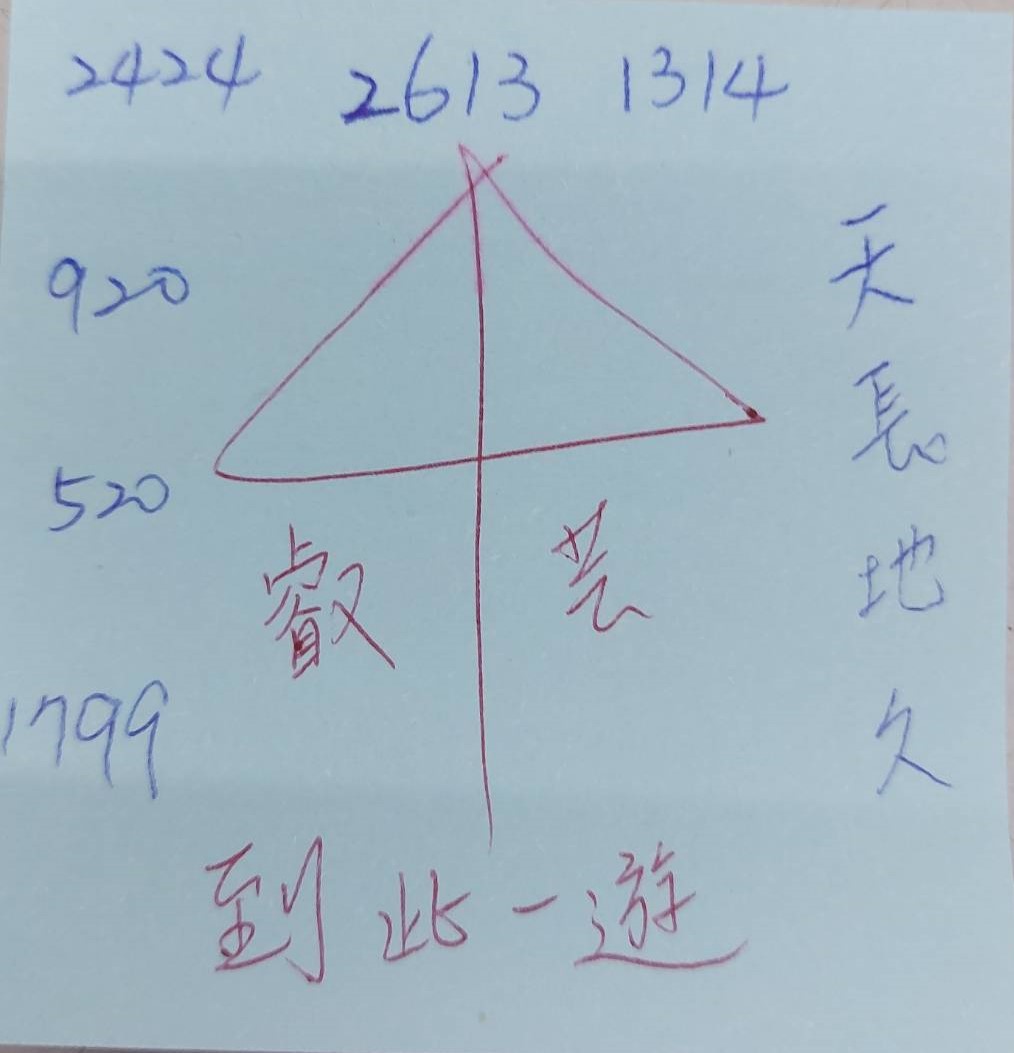 2424 2613 1314
920
520
1799
叡 芸
天長地久
到此一遊